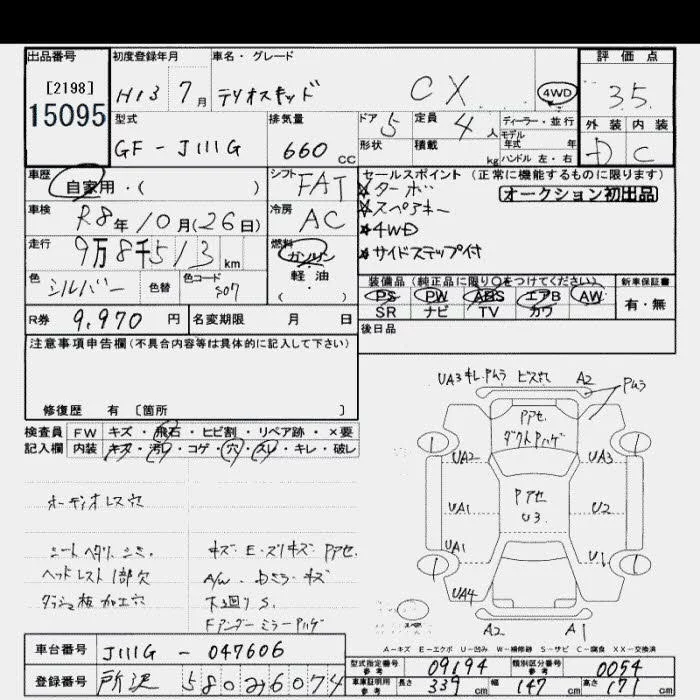 出品番号 初度登録年月 車名・グレード 評価点
[2198]
15095
H13 7月 テリオスキッド CX 4WD 3.5
型式 排気量 ドア 5 定員 4人 ディーラー・並行 外装 内装
GF-J111G 660 CC 形状 積載 kg モデル年式 年 ハンドル 左・右 D C
車歴 自家用・( ) シフト FAT セールスポイント(正常に機能するものに限ります)
☆ターボ オークション初出品
☆スペアキー
☆4WD
☆サイドステップ付
車検 R8年10月(26日) 冷房 AC
走行 9万8千513km 燃料 ガソリン
軽・油
( )
色 シルバー 色替 色コード S07
装備品(純正品に限り○をつけてください) 新車保証書
PS PW ABS エアB AW 有・無
SR ナビ TV カワ
R券 9,970円 名変期限 月 日 後日品
注意事項申告欄(不具合内容等は具体的に記入して下さい)
修復歴 有 [箇所 ]
検査員 FW キズ・飛石・ヒビ割・リペア跡・×要
記入欄 内装 キズ・汚レ・コゲ・穴・スレ・キレ・破レ
オーディオレス穴
シートヘタリ シミ.
ヘッドレスト1部欠
ダッシュ板加工穴
キズ・E・スリキズ Pアセ.
A/W・ドミラーキズ
下廻りS.
FアンダーミラーPハゲ
UA3 キレ.Pムラ ビス穴 A2 Pムラ
Pアセ.
ダクトPハゲ
UA2 UA3
1 1
Pアセ
U3.
UA1 U2
UA1 U1
1 1
UA4
A2 A1
A-キズ E-エクボ U-凹み W-補修跡 S-サビ C-腐食 XX-交換済
車台番号 J111G-047606
登録番号 所沢 580 2 6074
型式指定番号 参考 09194 類別区分番号 参考 0054
車庫証明用 参考 長さ 339cm 幅 147cm 高さ 171cm